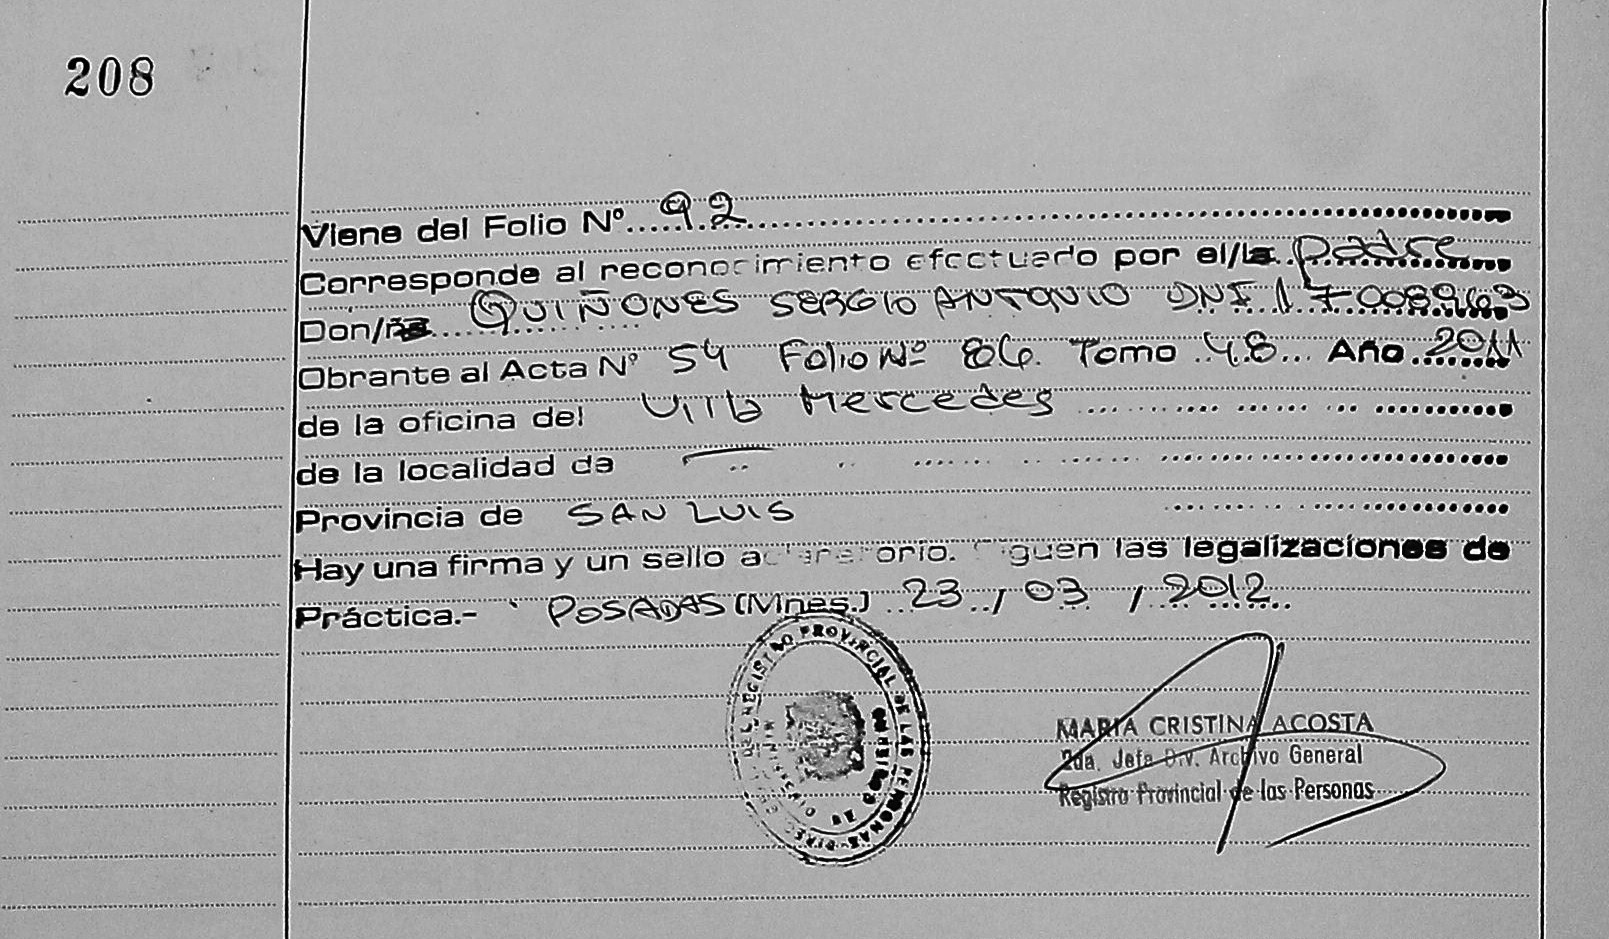 208
Viene del Folio Nº 92
Corresponde al reconocimiento efectuado por el/la padre
Don/ña QUIÑONES SERGIO ANTONIO DNI 17008963
Obrante al Acta Nº 54 Folio Nº 86 Tomo 48 Año 2011
de la oficina del Villa Mercedes
de la localidad de —
Provincia de SAN LUIS
Hay una firma y un sello aclaratorio. Siguen las legalizaciones de
Práctica.- POSADAS (Mnes.) 23 / 03 / 2012
REGISTRO PROVINCIAL DE LAS PERSONAS
MARIA CRISTINA ACOSTA
2da. Jefa Div. Archivo General
Registro Provincial de las Personas